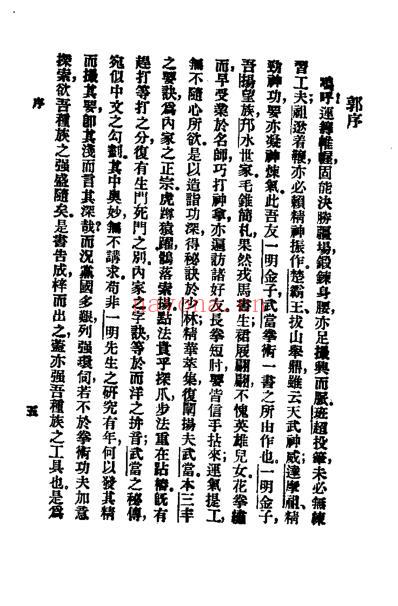 郭序
嗚呼運籌帷幄固能決勝疆場鍛鍊身腰亦足攝興而厥班超投筆未必無練
習工夫祖逖着鞭亦必賴精神振作楚霸王拔山舉鼎雖云天武神威達摩祖精
勁神功要亦凝神煉氣此吾友一明金子武當拳術一書之所由作也一明金子
吾揚望族邗水世家毛錐簡札果然戎馬書生裙展翩翩不愧英雄兒女花拳繡
而早受業於名師巧打神拿亦遍訪諸好友長拳短肘要皆信手拈來運氣提工
無不隨心所欲是以造詣功深得秘訣於少林精華萃集復闡揚夫武當本三丰
之要訣爲內家之正宗虎蹲猿躍鶻落索擒點法貴乎探爪步法重在跕樁旣有
趕打等打之分復有生門死門之別內家五字訣等於而洋之拚音武當之秘傳
宛似中文之勾劃其中奥妙無不講求苟非一明先生之研究有年何以發其精
而攝其要卽其淺而言其深哉而況黨國多艱列强環伺若不於拳術功夫加意
探索欲吾種族之强盛隨矣是書告成梓而出之蓋亦强吾種族之工具也是爲
序
五
nayona.cn